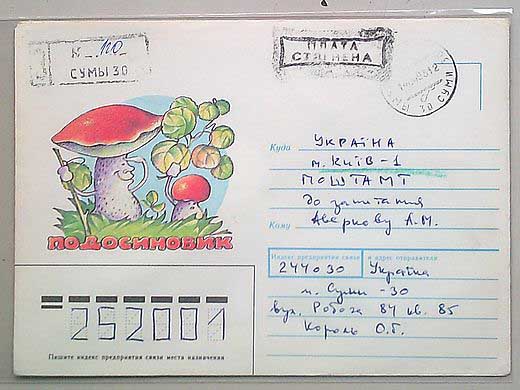 № 110
СУМЫ 30
ПЛАТА
СТЯГНЕНА
СУМИ 30
ПОДОСИНОВИК
Куда УКРАЇНА
м. КИЇВ-1
ПОШТАМТ
до запитання
Кому Аверкову Л.М.
Индекс предприятия связи и адрес отправителя
244030 Україна
м. Суми -30
вул. Робоча 84 кв. 85
Король О.Г.
252001
Пишите индекс предприятия связи места назначения